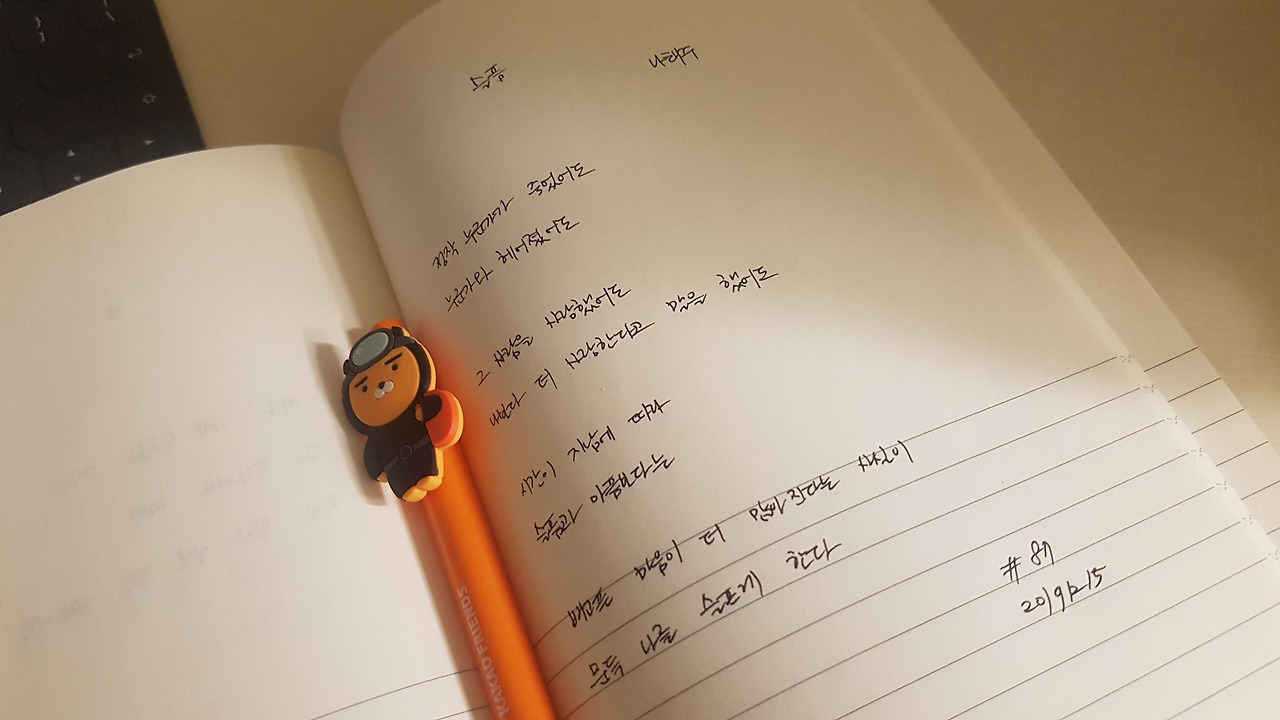 슬픔 나태주
정작 누군가가 죽었어도
누군가와 헤어졌어도
그 사람을 사랑했어도
더 사랑한다고 말을 했어도
시간이 지남에 따라
슬픔과 아픔보다는
배고픈 마음이 더 많아진다는 사실이
문득 나를 슬프게 한다
KAKAO FRIENDS